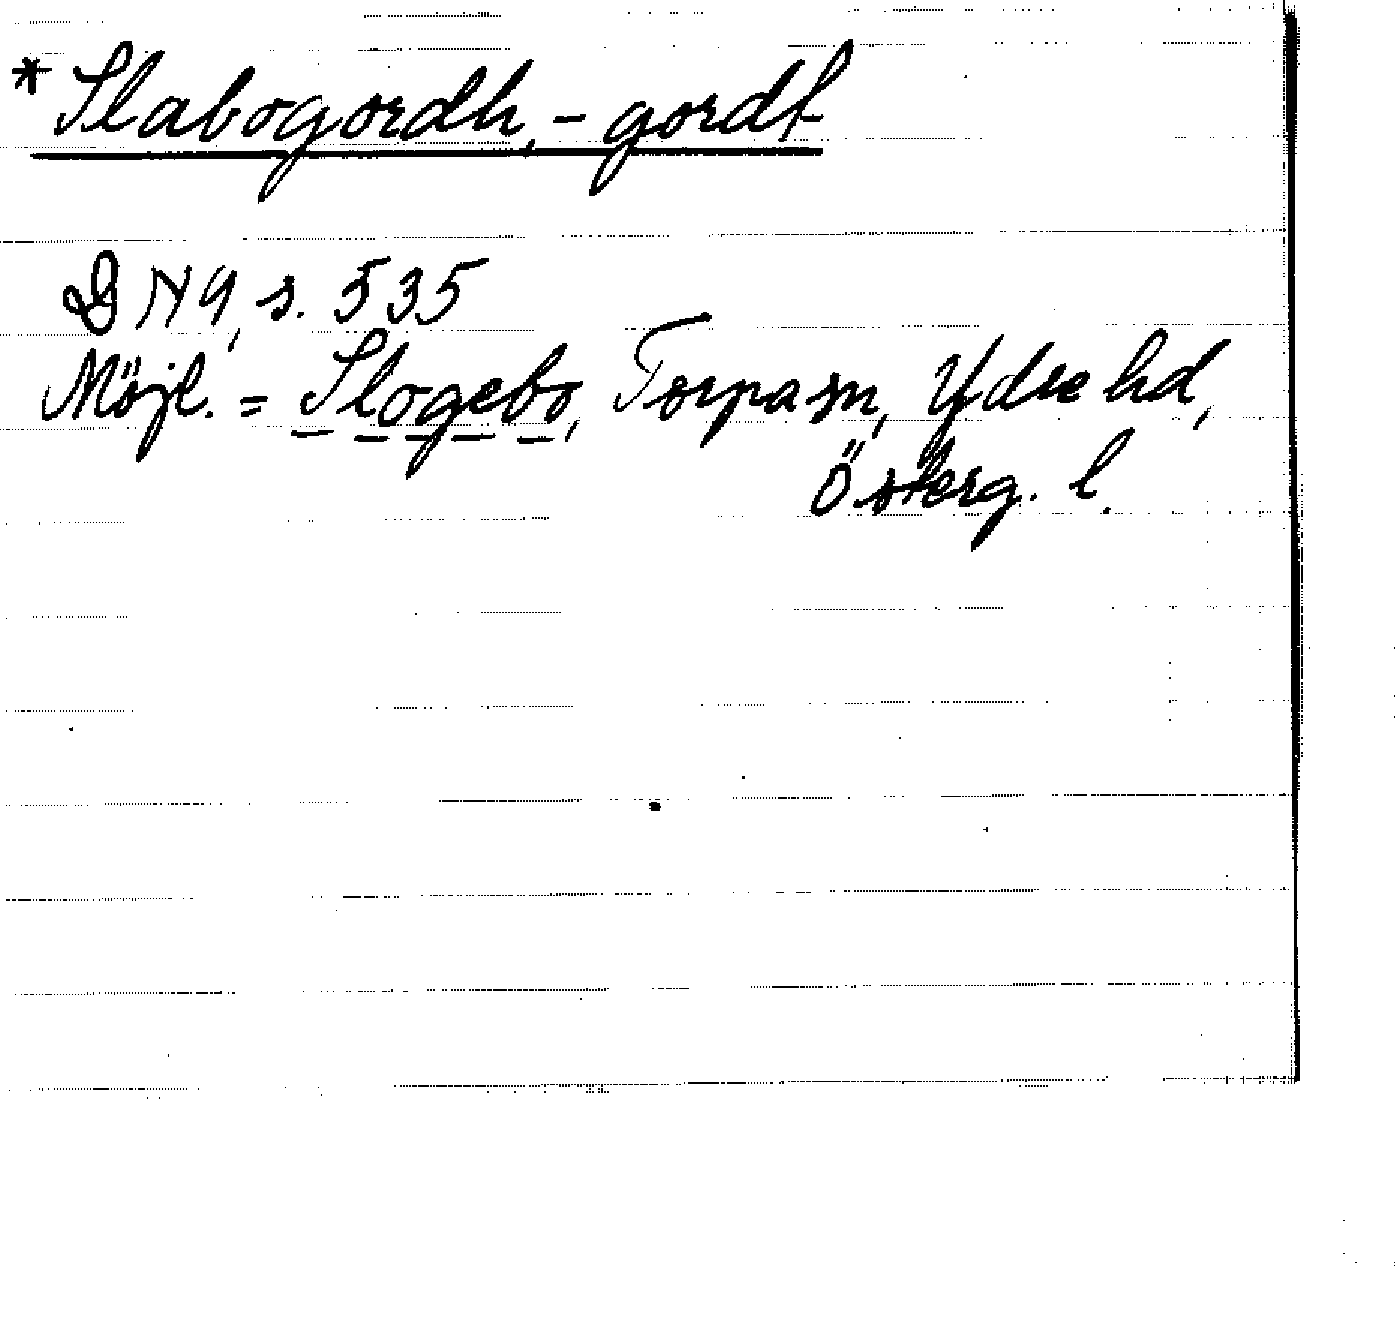 *Slabogordh, -gordt
DN 9, s. 535
Möjl. = Slogebo, Torpa sn, Ydre hd,
Österg. l.